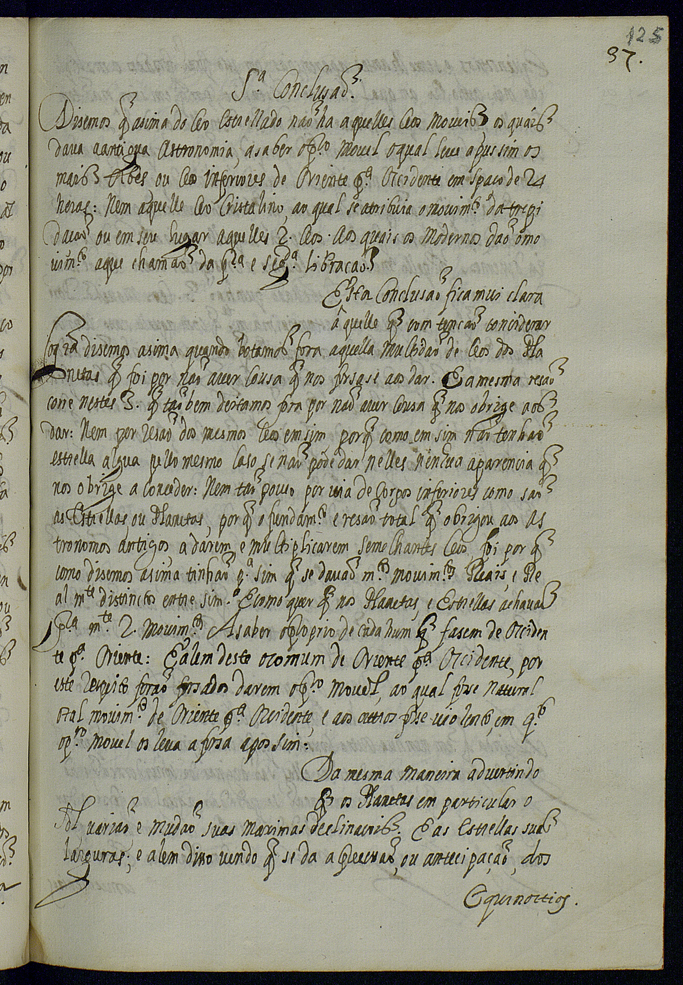 125
37.
5ª Conclusaõ.
Disemos q̃ asima do Ceo Estrellado naõ ha aquelles Ceos moueis os quais
daua aantigua Astronomia, asaber o pr.º mouel o qual leue apos sim os
mais Orbes ou Ceos inferiores de Oriente p.ª Occidente em espaço de 24
horas: Nem aquelle Ceo Cristalino, ao qual se atribuia o mouim.to da trepi
dacaõ ou em seu lugar aquelles 2. Ceos. Aos quais os Modernos daõ o mo
uim.to aque chamaõ da pr.ª e seg.ª libracaõ.
Esta Conclusaõ fica mui clara
â quelle q̃ com tencaõ conciderar
o q̃ ia disemos asima quando botamos fora aquella multidaõ de Ceos dos Pla
netas q̃ foi por naõ auer cousa q̃ nos forsase aos dar. E a mesma resaõ
corre nestes 3. q̃ taõ bem deitamos fora por naõ auer cousa q̃ nos obrige aos
dar: Nem por resaõ dos mesmos Ceos em sim porq̃ como em sim naõ tenhaõ
estrella algua pello mesmo caso se naõ pode dar nelles nenhua aparencia q̃
nos obrige a conceder: Nem taõ pouco por uia de corpos inferiores como saõ
as Estrellas ou Planetas, porq̃ o fundam.to e resaõ total q̃ obrigou aos As
tronomos antigos a darem, e multiplicarem semelhantes Ceos, foi por q̃
como disemos asima tinhaõ p.ª sim q̃ se dauaõ m.tos mouim.tos Reais, e Re
al m.te distinctos entre sim. E como quer q̃ nos Planetas, e Estrellas achauaõ
2. mouim.tos Asaber o proprio de cada hum q̃ fasem de Occiden
te p.ª Oriente: E alem deste o comum de Oriente p.ª Occidente, por
este respeito foraõ forsados darem o pr.º mouel, ao qual fose natural
o tal mouim.to de Oriente p.ª Occidente, e aos outros fose uiolento, em q.to
o pr.º mouel os leua a forsa apos sim.
Da mesma maneira aduertindo
q̃ os Planetas em particular o
Sol uariaõ e mudaõ suas maximas declinacois. E as Estrellas suas
larguras; e alem disso uendo q̃ se da a precessaõ, ou antecipaçaõ, dos
Equinoctios.